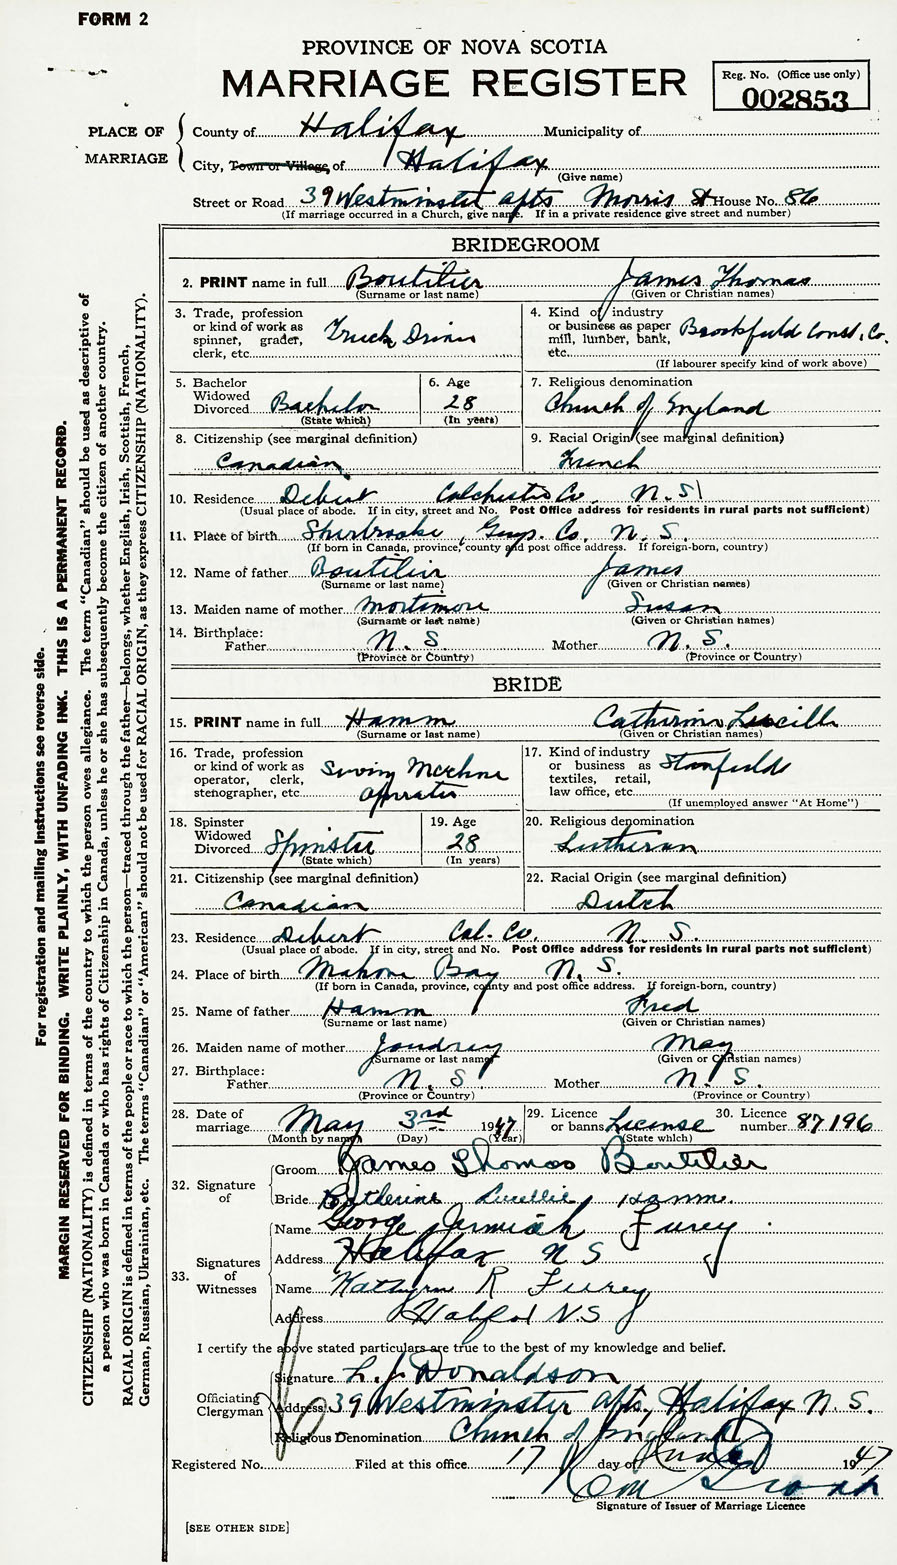 FORM 2
PROVINCE OF NOVA SCOTIA
MARRIAGE REGISTER
Reg. No. (Office use only)
002853
PLACE OF MARRIAGE
County of Halifax Municipality of
City, Town or Village of Halifax
(Give name)
Street or Road 39 Westminster Apts Morris St House No. 86
(If marriage occurred in a Church, give name. If in a private residence give street and number)
BRIDEGROOM
2. PRINT name in full Boutilier James Thomas
(Surname or last name) (Given or Christian names)
3. Trade, profession or kind of work as spinner, grader, clerk, etc. Truck Driver
4. Kind of industry or business as paper mill, lumber, bank, etc. Brookfield Const. Co.
(If labourer specify kind of work above)
5. Bachelor Widowed Divorced Bachelor
(State which)
6. Age 28
(In years)
7. Religious denomination
Church of England
8. Citizenship (see marginal definition)
Canadian
9. Racial Origin (see marginal definition)
French
10. Residence Debert Colchester Co. N.S.
(Usual place of abode. If in city, street and No. Post Office address for residents in rural parts not sufficient)
11. Place of birth Sherbrooke, Guys. Co. N.S.
(If born in Canada, province, county and post office address. If foreign-born, country)
12. Name of father Boutilier James
(Surname or last name) (Given or Christian names)
13. Maiden name of mother Mortimore Susan
(Surname or last name) (Given or Christian names)
14. Birthplace:
Father N.S. Mother N.S.
(Province or Country) (Province or Country)
BRIDE
15. PRINT name in full Hamm Catherine Lucille
(Surname or last name) (Given or Christian names)
16. Trade, profession or kind of work as operator, clerk, stenographer, etc. Sewing Machine Operator
17. Kind of industry or business as textiles, retail, law office, etc. Stanfields
(If unemployed answer "At Home")
18. Spinster Widowed Divorced Spinster
(State which)
19. Age 28
(In years)
20. Religious denomination
Lutheran
21. Citizenship (see marginal definition)
Canadian
22. Racial Origin (see marginal definition)
Dutch
23. Residence Debert Col. Co. N.S.
(Usual place of abode. If in city, street and No. Post Office address for residents in rural parts not sufficient)
24. Place of birth Mahone Bay N.S.
(If born in Canada, province, county and post office address. If foreign-born, country)
25. Name of father Hamm Fred
(Surname or last name) (Given or Christian names)
26. Maiden name of mother Joudrey May
(Surname or last name) (Given or Christian names)
27. Birthplace:
Father N.S. Mother N.S.
(Province or Country) (Province or Country)
28. Date of marriage May 3rd 1947
(Month by name) (Day) (Year)
29. Licence or banns License
(State which)
30. Licence number 87196
32. Signature of
Groom James Thomas Boutilier
Bride Catherine Lucellie Hamm.
33. Signatures of Witnesses
Name George Jermiah Furey
Address Halifax N S
Name Kathryn R Furey
Address Halifax N.S
I certify the above stated particulars are true to the best of my knowledge and belief.
Officiating Clergyman
Signature L. J. Donaldson
Address 39 Westminster Apts, Halifax N.S.
Religious Denomination Church of England
Registered No. Filed at this office 17 day of June 1947
Signature of Issuer of Marriage Licence
[SEE OTHER SIDE]
For registration and mailing instructions see reverse side.
MARGIN RESERVED FOR BINDING. WRITE PLAINLY, WITH UNFADING INK. THIS IS A PERMANENT RECORD.
CITIZENSHIP (NATIONALITY) is defined in terms of the country to which the person owes allegiance. The term "Canadian" should be used as descriptive of
a person who was born in Canada or who has rights of Citizenship in Canada, unless he or she has subsequently become the citizen of another country.
RACIAL ORIGIN is defined in terms of the people or race to which the person—traced through the father—belongs, whether English, Irish, Scottish, French,
German, Russian, Ukrainian, etc. The terms "Canadian" or "American" should not be used for RACIAL ORIGIN, as they express CITIZENSHIP (NATIONALITY).